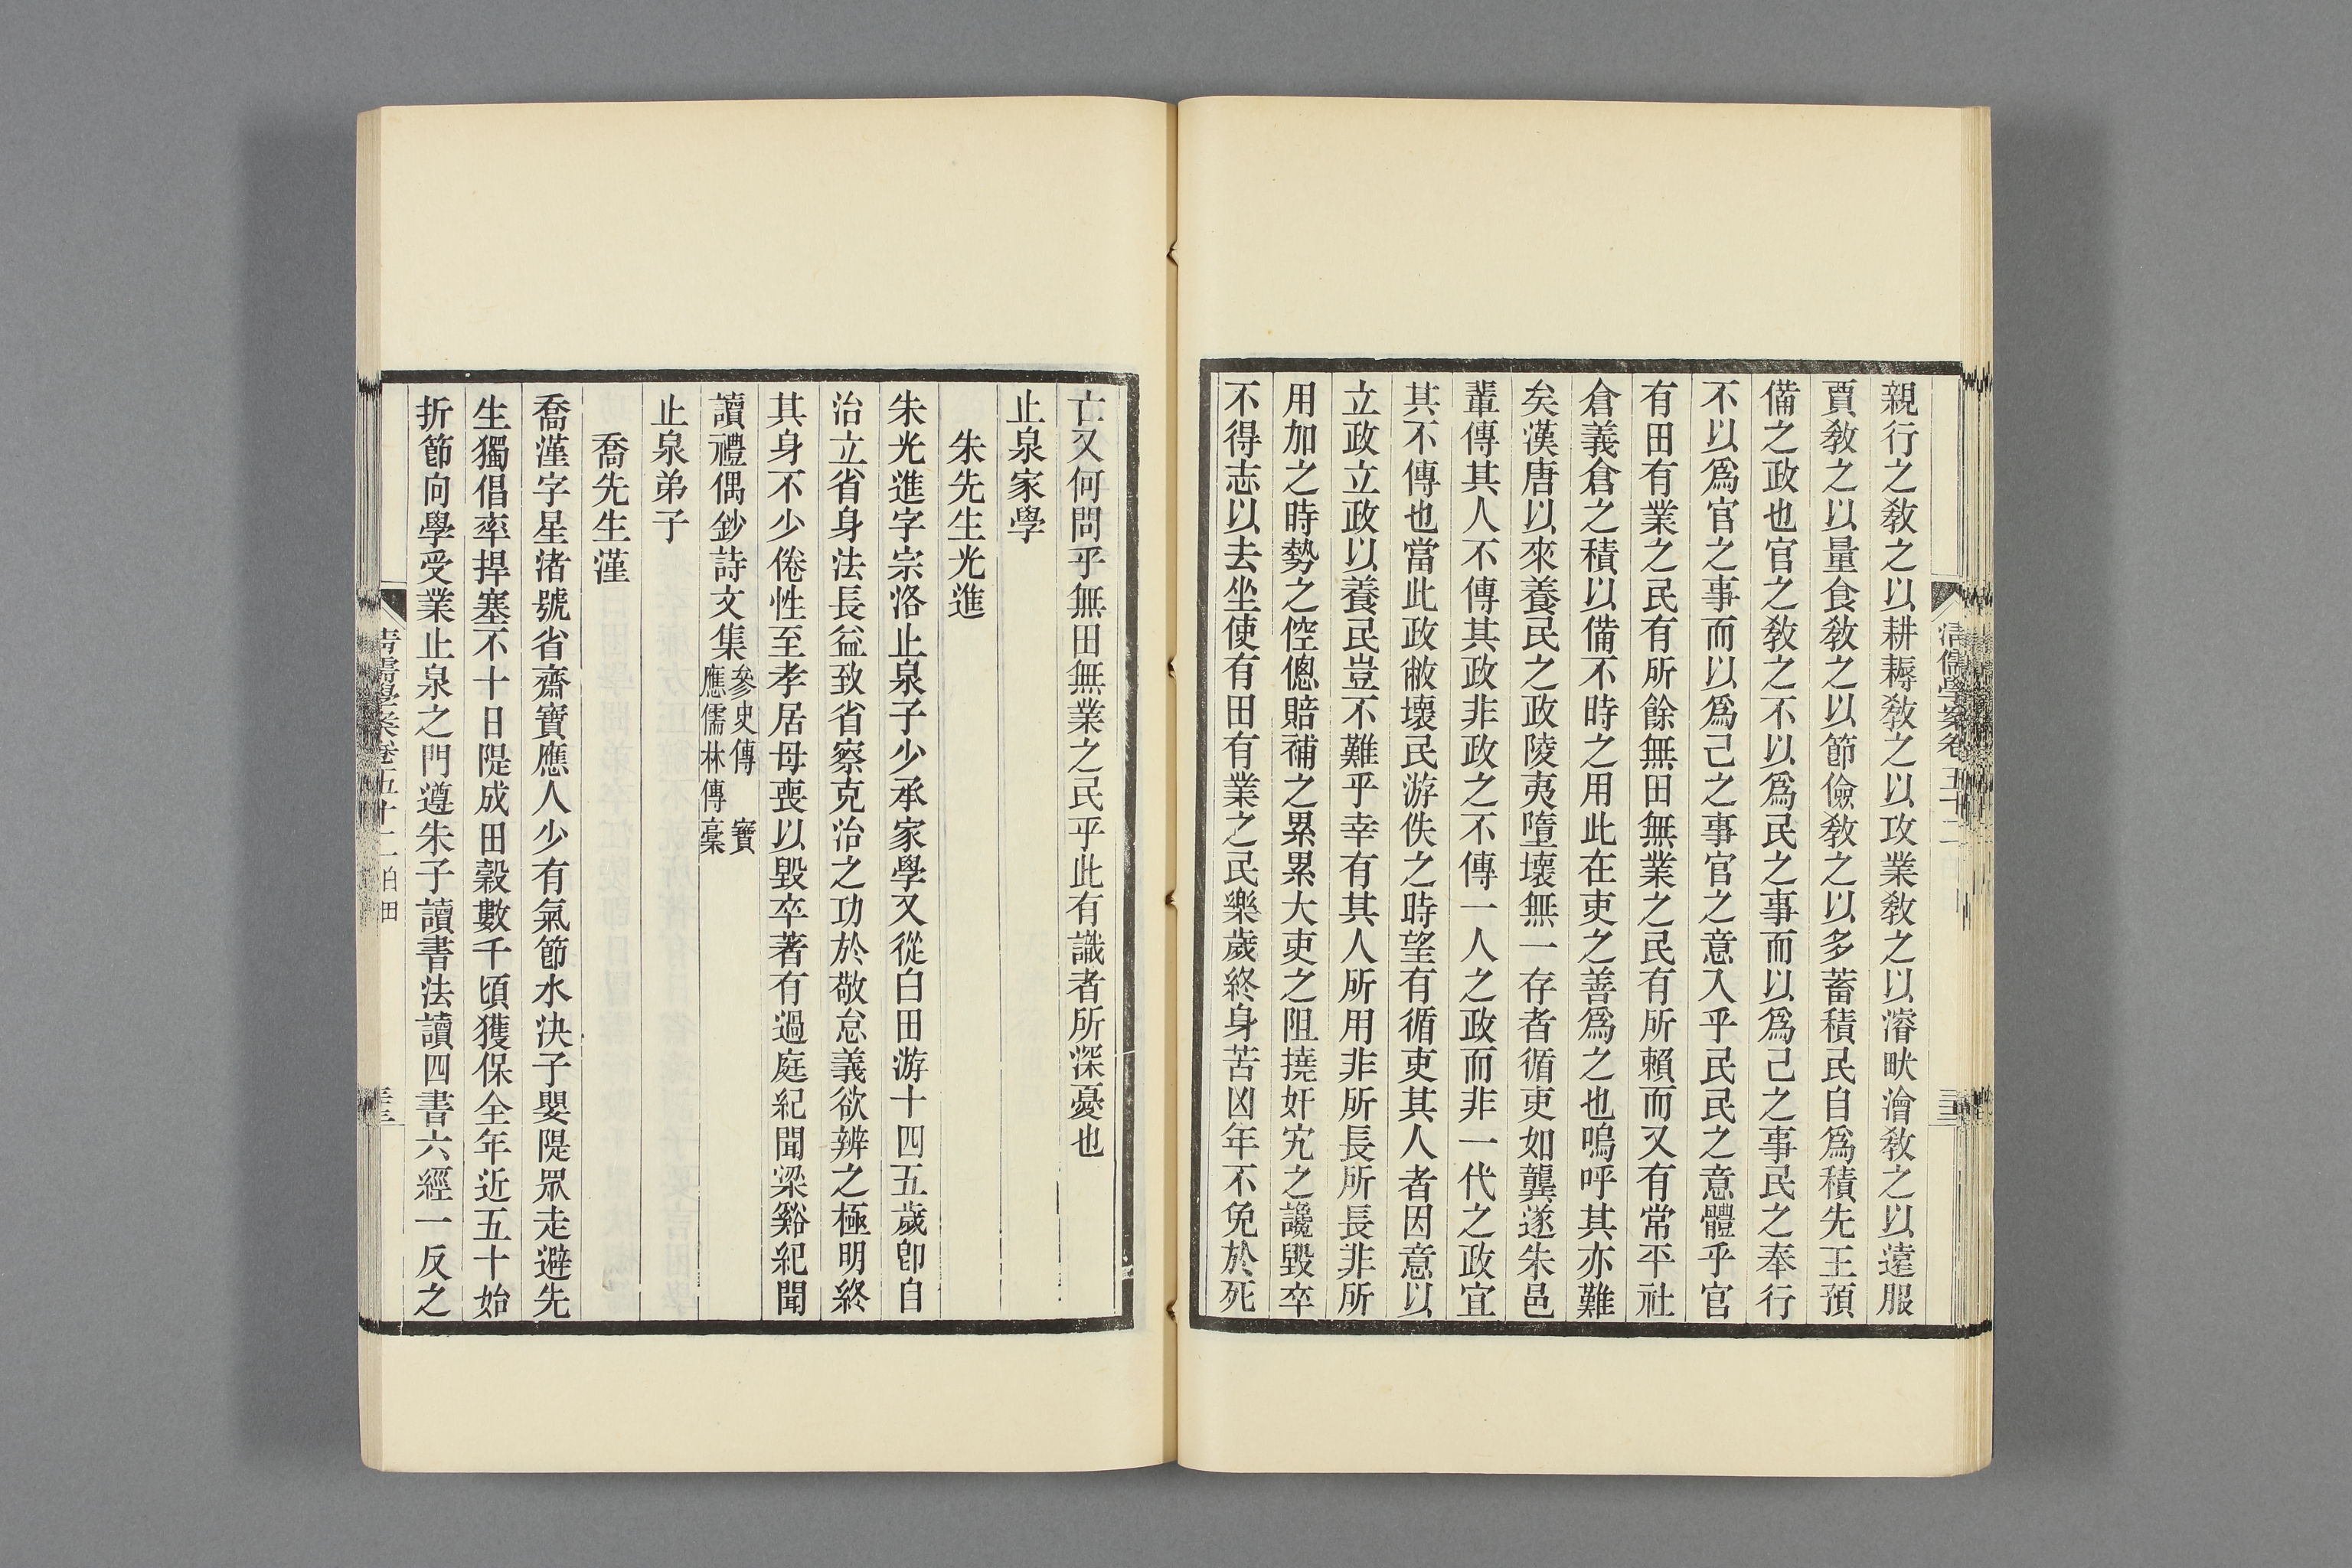 親行之敎之以耕耨敎之以攻業敎之以濬畎澮敎之以遠服
賈敎之以量食敎之以節儉敎之以多蓄積民自爲積先王預
備之政也官之敎之不以爲民之事而以爲己之事民之奉行
不以爲官之事而以爲己之事官之意入乎民民之意體乎官
有田有業之民有所餘無田無業之民有所賴而又有常平社
倉義倉之積以備不時之用此在吏之善爲之也嗚呼其亦難
矣漢唐以來養民之政陵夷墮壞無一存者循吏如龔遂朱邑
輩傳其人不傳其政非政之不傳一人之政而非一代之政宜
其不傳也當此政敝壞民游佚之時望有循吏其人者因意以
立政立政以養民豈不難乎幸有其人所用非所長所長非所
用加之時勢之倥傯賠補之累累大吏之阻撓奸宄之讒毀卒
不得志以去坐使有田有業之民樂歲終身苦凶年不免於死
亡又何問乎無田無業之民乎此有識者所深憂也
止泉家學
朱先生光進
朱光進字宗洛止泉子少承家學又從白田游十四五歲卽自
治立省身法長益致省察克治之功於敬怠義欲辨之極明終
其身不少倦性至孝居母喪以毀卒著有過庭紀聞梁谿紀聞
讀禮偶鈔詩文集參史傳 寶應儒林傳稾
止泉弟子
喬先生漌
喬漌字星渚號省齋寶應人少有氣節水決子嬰隄眾走避先
生獨倡率捍塞不十日隄成田穀數千頃獲保全年近五十始
折節向學受業止泉之門遵朱子讀書法讀四書六經一反之
清儒學案卷五十二 白田